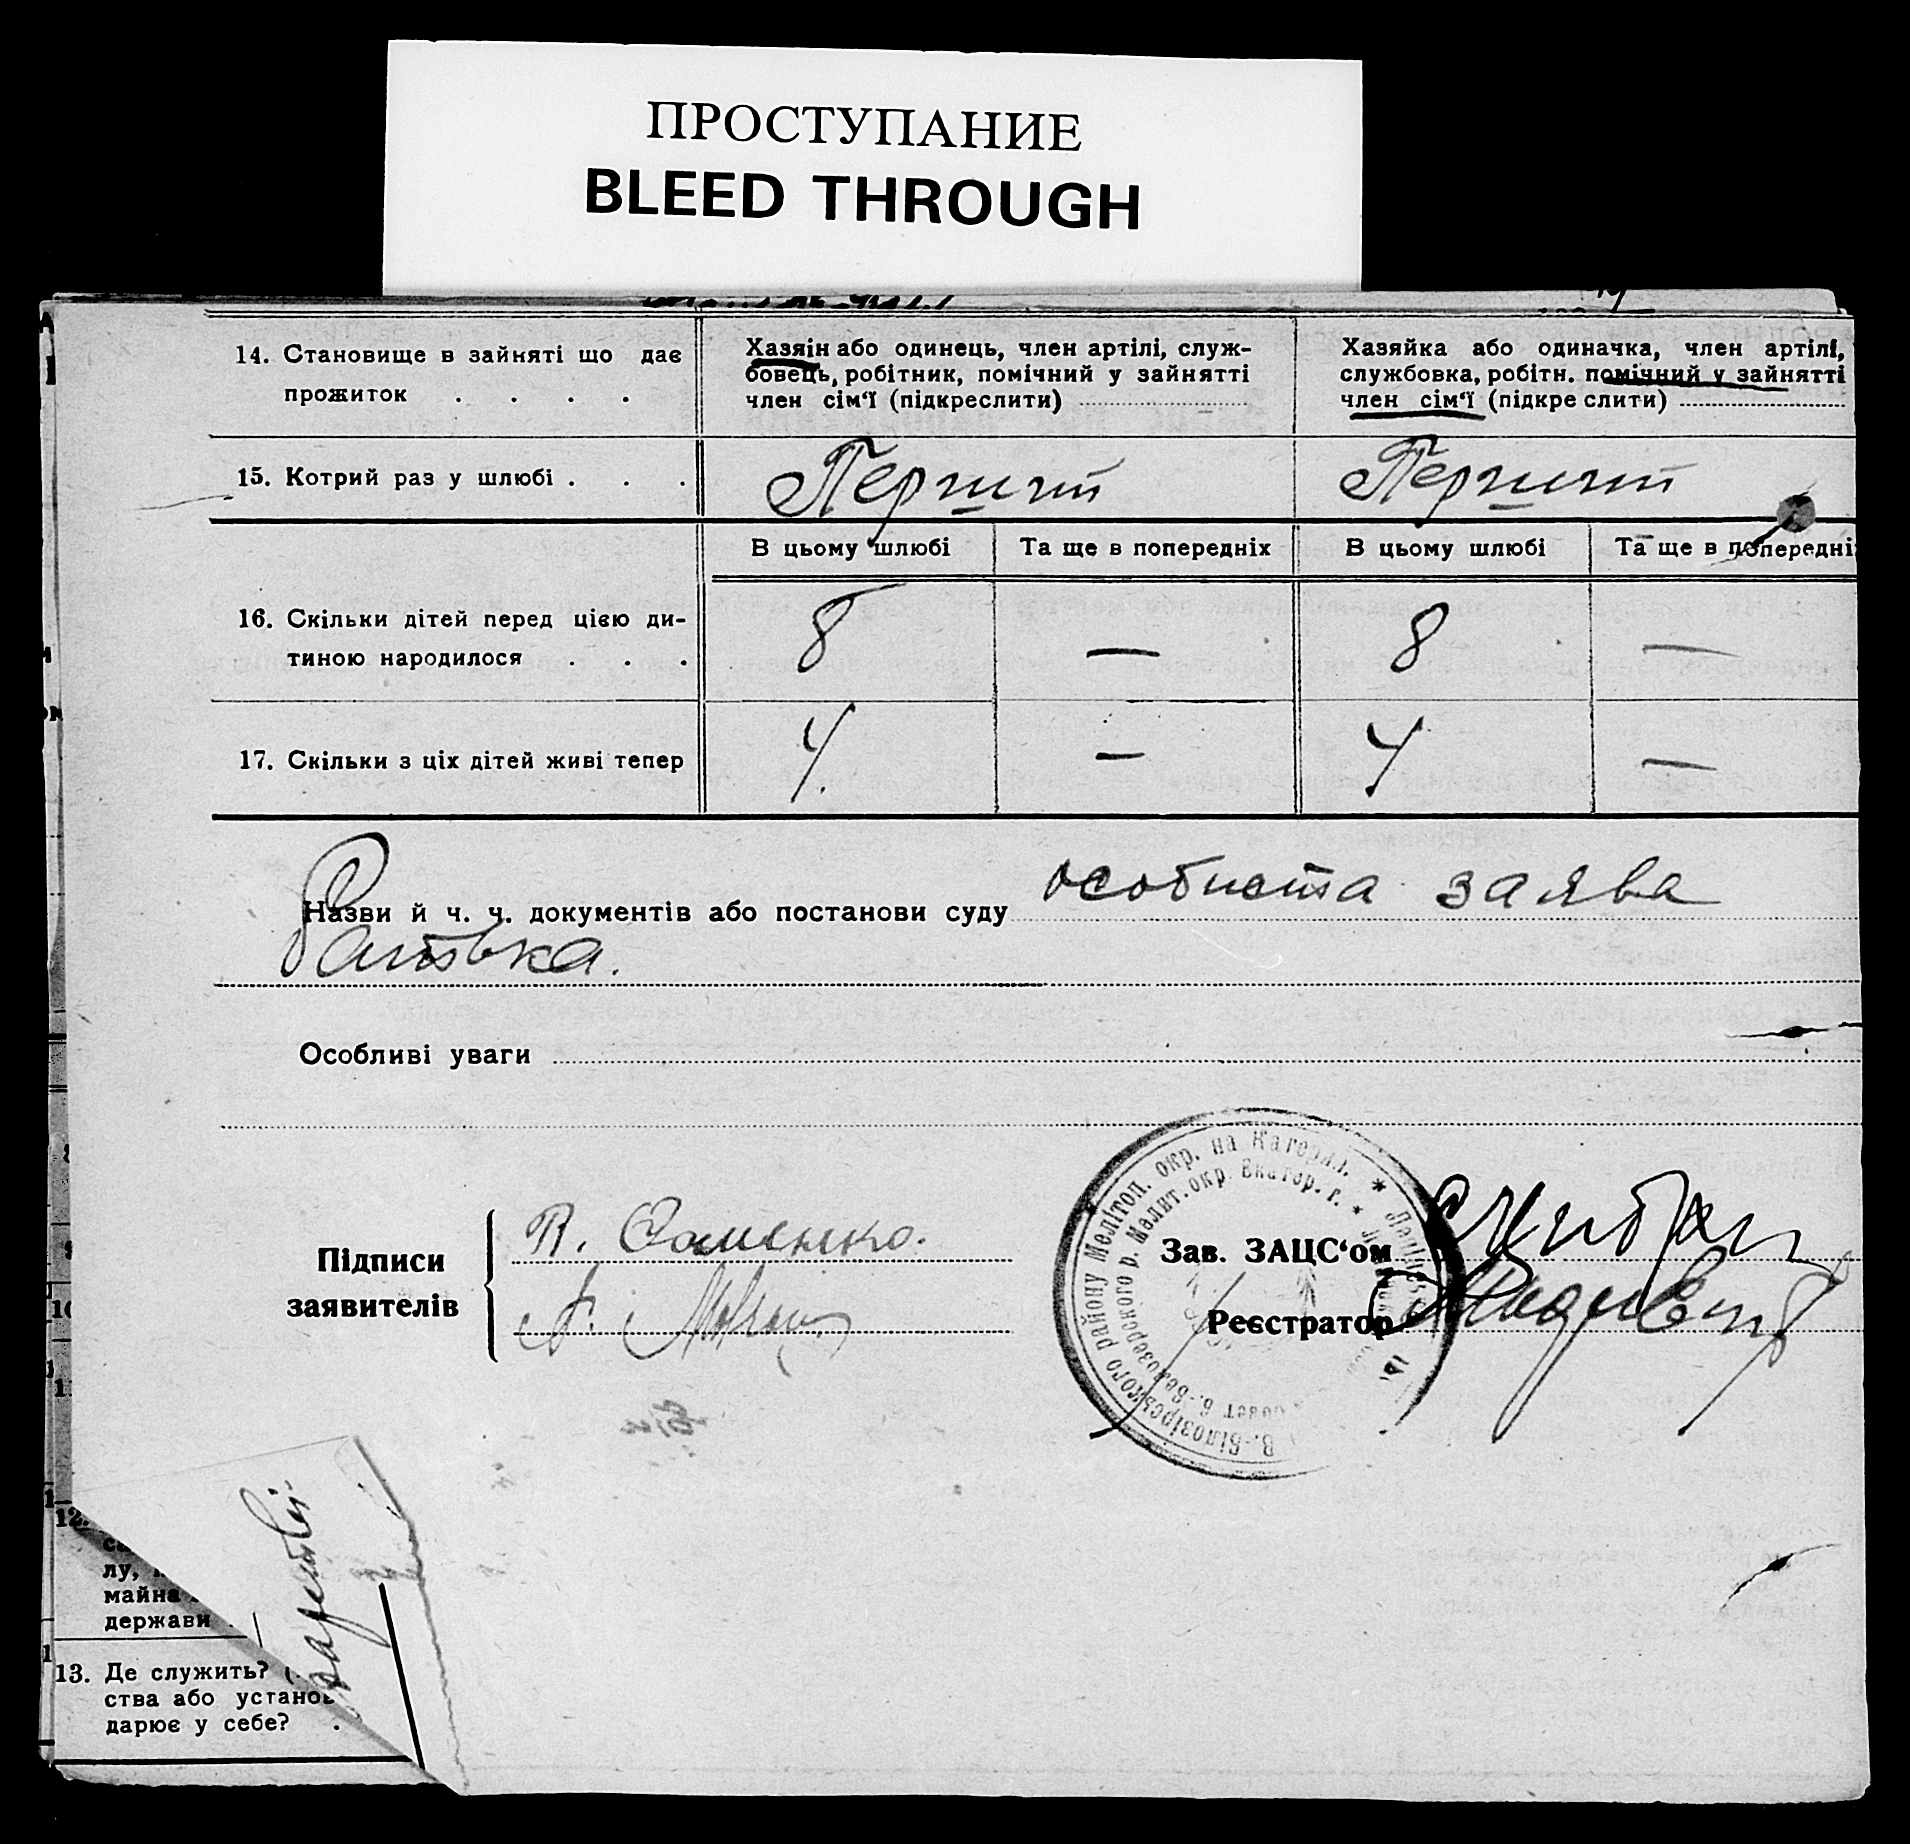 ПРОСТУПАНИЕ
BLEED THROUGH
14. Становище в зайняті що дає
прожиток . . . .
Хазяїн або одинець, член артілі, служ-
бовець, робітник, помічний у зайнятті
член сім'ї (підкреслити)
Хазяйка або одиначка, член артілі,
службовка, робітн. помічний у зайнятті
член сім'ї (підкре слити)
15. Котрий раз у шлюбі . . .
Перший
Перший
В цьому шлюбі
Та ще в попередніх
В цьому шлюбі
Та ще в попередні
16. Скільки дітей перед цією ди-
тиною народилося . . .
8 — 8 —
17. Скільки з ціх дітей живі тепер
4. — 4 —
Назви й ч. ч. документів або постанови суду особиста заява
батька.
Особливі уваги
Підписи
заявителів
Зав. ЗАЦС'ом
Реєстратор
В.-Білозірського району Меліτοп. окр. на Катерин. *
12.
лу,
майна
держави .
13. Де служить?
ства або установ
дарює у себе? .